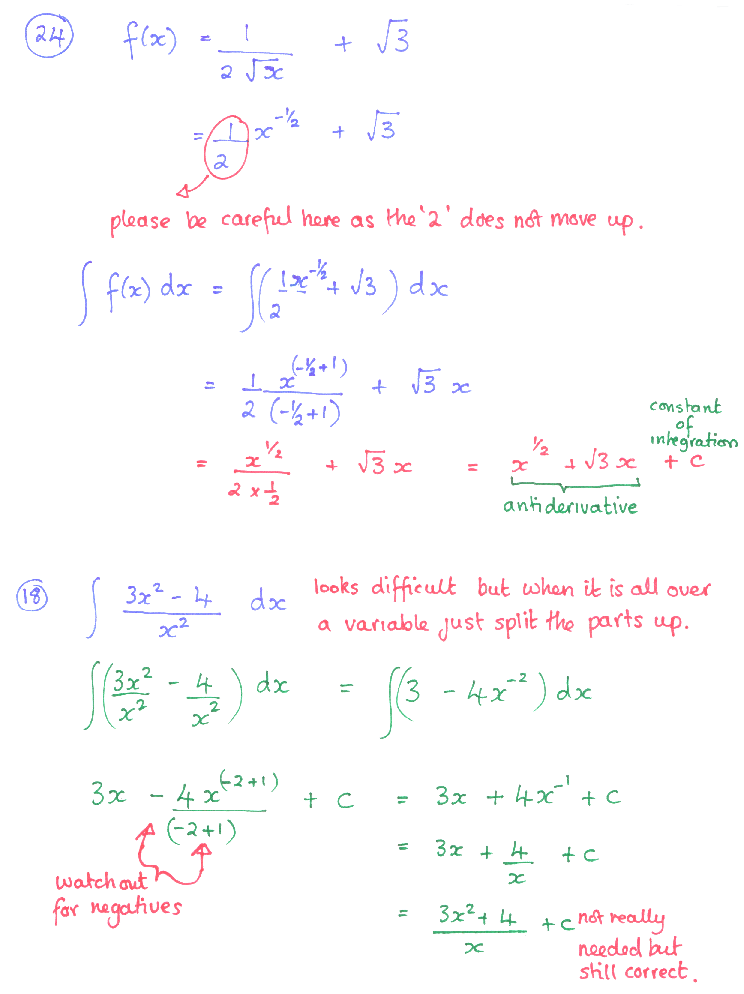 24 f(x) = 1/(2√x) + √3
= 1/2 x^(-1/2) + √3
please be careful here as the '2' does not move up.
∫ f(x) dx = ∫(1/2 x^(-1/2) + √3) dx
= 1/2 x^(-1/2+1)/(-1/2+1) + √3 x
= x^(1/2)/(2 × 1/2) + √3 x = x^(1/2) + √3 x + c
constant
of
integration
antiderivative
18 ∫ (3x² - 4)/x² dx
looks difficult but when it is all over
a variable just split the parts up.
∫(3x²/x² - 4/x²) dx = ∫(3 - 4x⁻²) dx
3x - 4x^(-2+1)/(-2+1) + c = 3x + 4x⁻¹ + c
= 3x + 4/x + c
watch out
for negatives
= (3x² + 4)/x + c
not really
needed but
still correct.